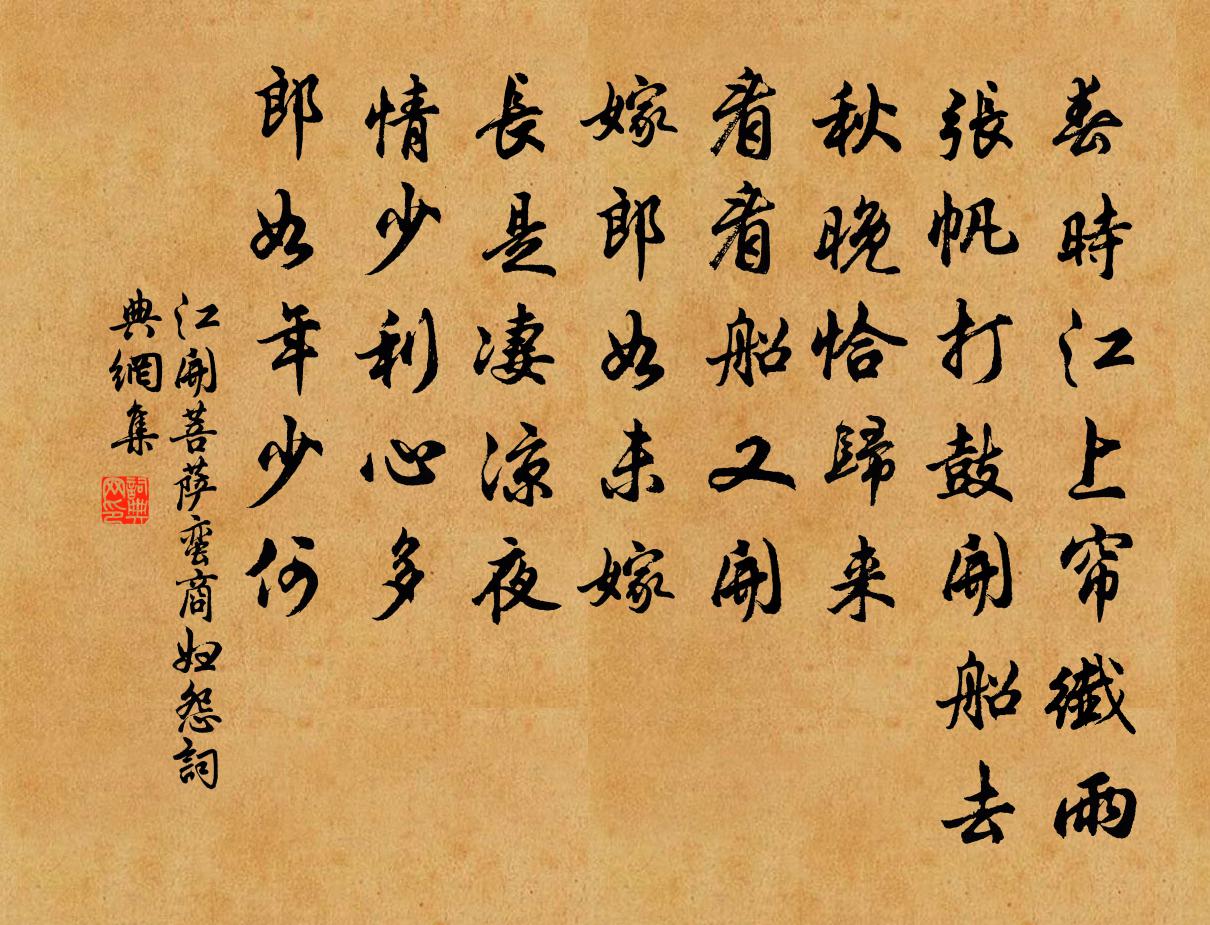 春時江上帘纖雨
張帆打鼓開船去
秋晚恰歸来
看看船又開
嫁郎如未嫁
長是凄凉夜
情少利心多
郎如年少何
江開菩萨蛮商妇怨詞
典網集
詞典
网印